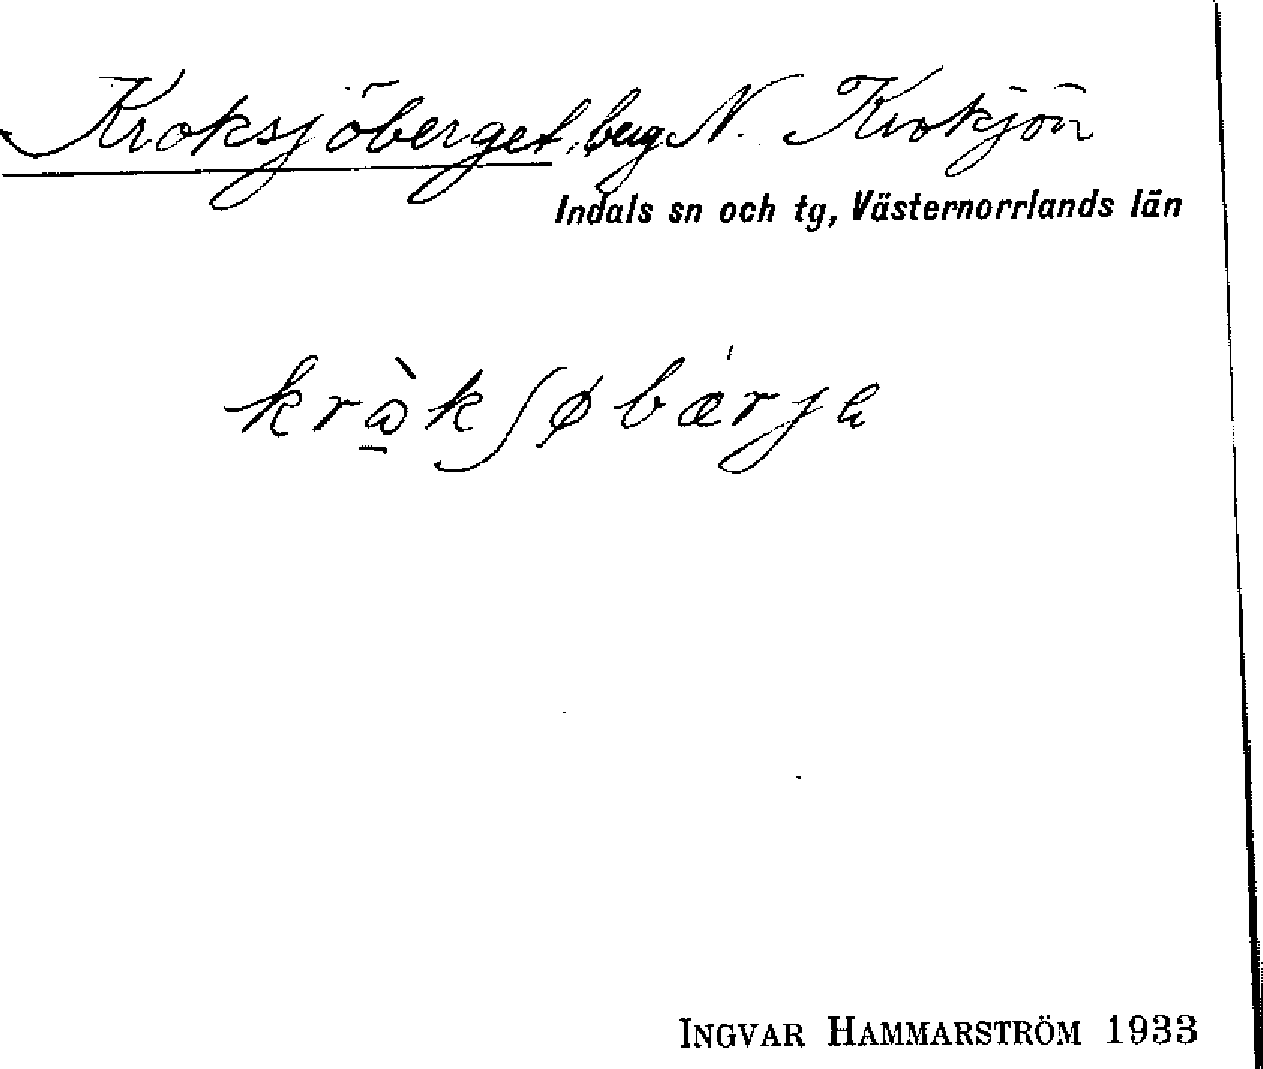 Kroksjöberget, berg N. Krokjön
Indals sn och tg, Västernorrlands län
krò̱kʃøbærjɐ
INGVAR HAMMARSTRÖM 1933